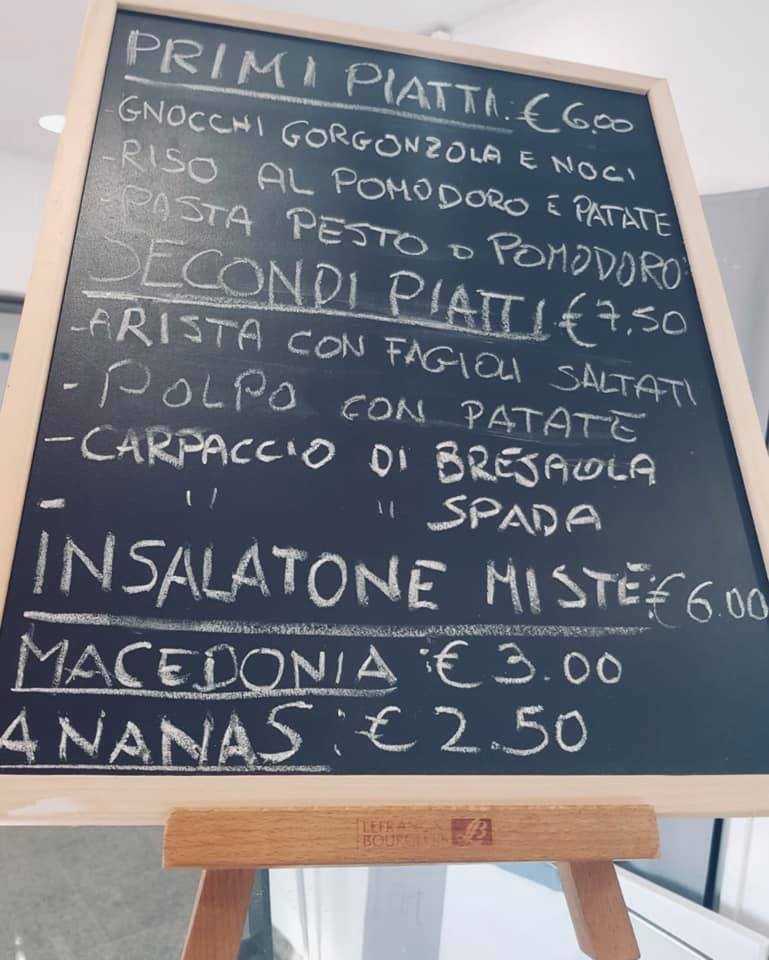 PRIMI PIATTI: € 6.00
-GNOCCHI GORGONZOLA E NOCI
-RISO AL POMODORO E PATATE
-PASTA PESTO O POMODORO
SECONDI PIATTI € 7.50
-ARISTA CON FAGIOLI SALTATI
-POLPO CON PATATE
-CARPACCIO DI BRESAOLA
- " " SPADA
INSALATONE MISTE: € 6.00
MACEDONIA: € 3.00
ANANAS: € 2.50
LEFRANC
BOURGEOIS